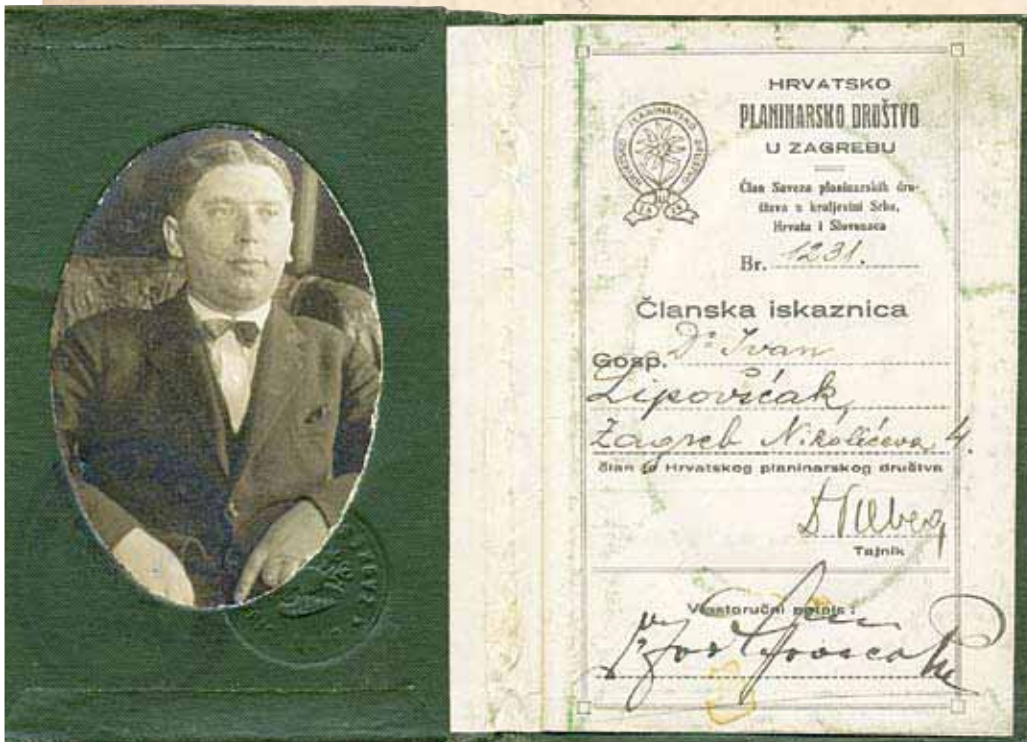 HRVATSKO
PLANINARSKO DRUŠTVO
U ZAGREBU
HRVATSKO PLANINARSKO DRUŠTVO
Član Saveza planinarskih dru-
štava u kraljevini Srba,
Hrvata i Slovenaca
Br. 1231.
Članska iskaznica
Gosp. Dr Ivan
Lipovšćak,
Zagreb Nikolićeva 4.
član je Hrvatskog planinarskog društva
Tajnik
Vlastoručni potpis: